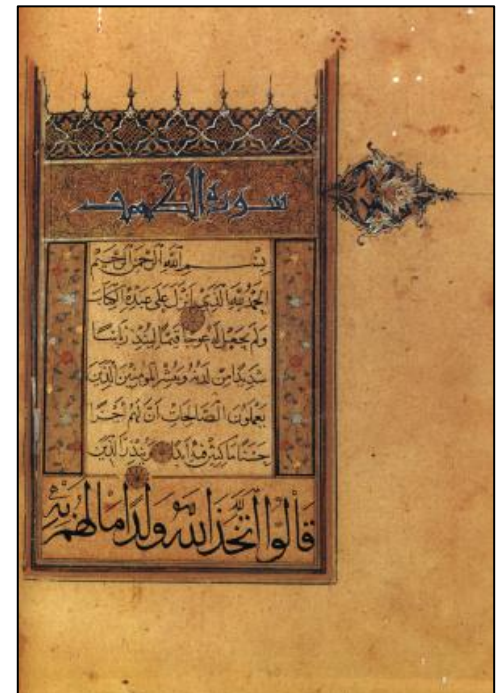 سورة الكهف
بِسْمِ اللَّهِ الرَّحْمَنِ الرَّحِيمِ
الحمد لله الذي أنزل على عبده الكتاب
ولم يجعل له عوجا قيما لينذر بأسا
شديدا من لدنه ويبشر المؤمنين الذين
يعملون الصالحات أن لهم أجرا
حسنا ماكثين فيه أبدا وينذر الذين
قالوا اتخذ الله ولدا ما لهم به